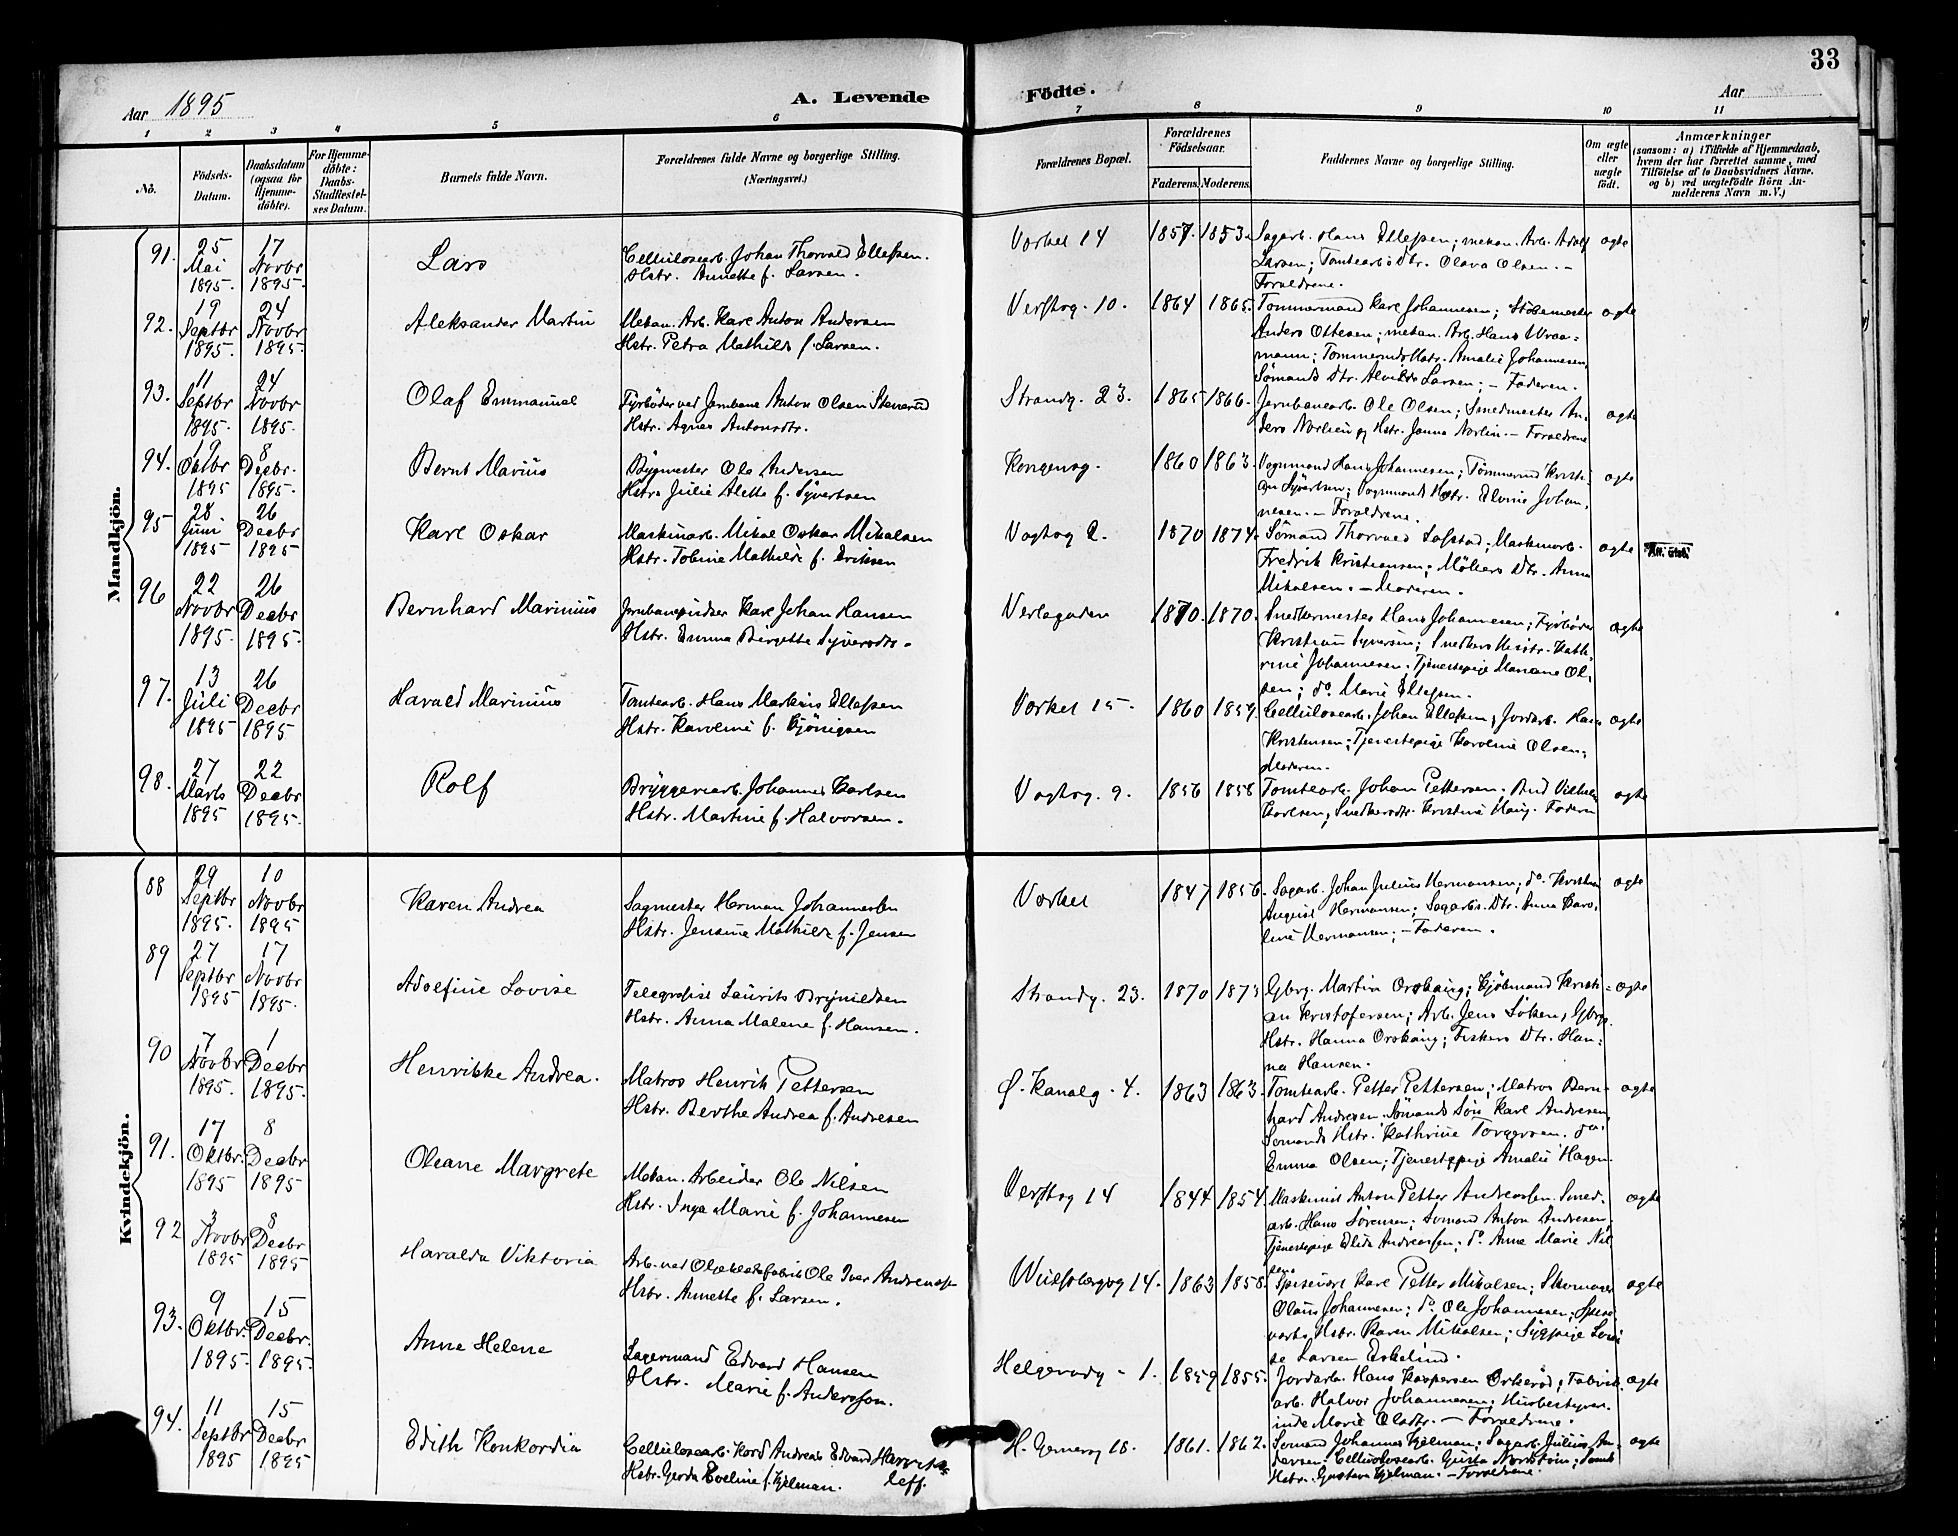 33
Aar 1895
A. Levende
Födte.
Aar
1
2
3
4
5
6
7
8
9
10
11
No.
Födsels-
Datum.
Daabsdatum
(ogsaa for
Hjemme-
döbte).
For Hjemme-
döbte:
Daabs-
Stadfæstel-
ses Datum.
Barnets fulde Navn.
Forældrenes fulde Navne og borgerlige Stilling.
(Næringsvei.)
Forældrenes Bopæl.
Forældrenes
Födselsaar.
Faderens.
Moderens.
Faddernes Navne og borgerlige Stilling.
Om ægte
eller
uægte
födt.
Anmærkninger
(saasom: a) i Tilfælde af Hjemmedaab,
hvem der har forrettet samme, med
Tilföielse af to Daabsvidners Navne.
og b) ved uægtefödte Börn An-
melderens Navn m.V.)
Mandkjön.
91. 25 Mai 1895. 17 Novbr 1895.
Lars
Cellulosearb. Johan Thorvald Ellefsen.
Hstr. Annette f. Larsen.
Vorkel 14
1857. 1853.
Sagarb. Hans Ellefsen; mekan. Arb. Adolf
Larsen; Tomtearb's Dtr. Olava Olsen. -
Forældrene.
ægte
92. 19 Septbr 1895. 24 Novbr 1895.
Aleksander Martin
Mekan. Arb. Karl Anton Andersen
Hstr. Petra Mathilde f. Larsen.
Verftsg. 10.
1864 1865.
Tömmermand Karl Johannesen; Stöbemester
Anders Ottesen; mekan. Arb. Hans Wraa-
mann; Tömmermds Hstr. Amalie Johannesen,
Sömands Dtr. Alvilde Larsen; - Faderen.
ægte
93. 11 Septbr 1895. 24 Novbr 1895.
Olaf Emmanuel
Fyrböder ved Jernbane Anton Olsen Stenerud
Hstr. Agnes Antonsdtr.
Strandg. 23.
1865 1866.
Jernbanearb. Ole Olsen; Smedmester An-
ders Norlien og Hstr. Janna Norlin. - Forældrene
ægte
94. 19 Oktbr 1895 8 Decbr. 1895.
Bernt Marius
Bygmester Ole Andersen
Hstr. Julie Alette f. Syvertsen
Kongensg.
1860 1863.
Vognmand Hans Johannesen; Tömmermd Kristi-
an Syvertsen; Vognmands Hstr. Elvine Johan-
nesen. - Forældrene.
ægte
95 28 Juni 1895 26 Decbr 1895
Karl Oskar
Maskinarb. Mikal Oskar Mikalsen
Hstr. Tobine Mathilde f. Eriksen
Vogtsg 2.
1870 1874.
Sömand Thorvald Lofstad; Maskinarb.
Fredrik Kristiansen; Möllers Dtr. Anna
Mikalsen. - Moderen.
ægte
Att. utst.
96 22 Novbr 1895. 26 Decbr 1895.
Bernhard Marinius
Jernbanepudser Karl Johan Hansen
Hstr. Emma Birgette Syversdtr.
Verlegaden
1870. 1870.
Snedkermester Hans Johannesen; Fyrböder
Kristian Syversen; Snedkers Hustr. Kath-
rine Johannesen; Tjenestepige Mariane Ol-
sen; do. Marie Ellefsen.
ægte
97. 13 Juli 1895 26 Decbr 1895
Harald Marinius
Tomtearb. Hans Markus Ellefsen
Hstr. Karoline f. Kjönigsen
Vorkel 15
1860 1859.
Cellulosearb. Johan Ellefsen; Jordarb. Hans
Kristensen; Tjenestepige Karoline Olsen;
Moderen.
ægte
98. 27 Marts 1895 22 Decbr 1895.
Rolf
Bryggeriarb. Johannes Karlsen
Hstr. Martine f. Halvorsen.
Vogtsg. 9.
1856 1858
Tomtearb. Johan Pettersen. Bud Vilhelm
Karlsen; Snedkersdtr. Kristine Haug. Faderen
ægte
Kvindekjön.
88 29 Septbr 1895. 10 Novbr 1895
Karen Andrea
Sagmester Herman Johannesen
Hstr. Jensine Mathilde f. Jensen
Vorkel
1847 1856.
Sagarb. Johan Julius Hermansen; do. Kristian
August Hermansen; Sagarbs. Dtr. Anna Karo-
line Hermansen; - Faderen.
ægte
89 27 Septbr 1895 17 Novbr 1895.
Adolfine Lovise
Telegrafist Laurits Brynildsen
Hstr. Anna Malene f. Hansen.
Strandg. 23.
1870 1873
Gbrg. Martin Orskaug; Kjöbmand Kristi-
an Kristofersen; Arb. Jens Löken, Gbrgs.
Hstr. Hanna Orskaug; Fiskers Dtr. Han-
na Hansen.
ægte
90 7 Novbr 1895. 1 Decbr 1895.
Henrikke Andrea.
Matros Henrik Pettersen
Hstr. Berthe Andrea f. Andresen
Ø. Kanalg. 4.
1863 1863.
Tomtearb. Petter Pettersen; Matros Bern-
hard Andresen. Sömands Sön Karl Andresen,
Sömands Hstr. Kathrine Torgersen. do.
Emma Olsen; Tjenestepige Amalie Hagen.
ægte
91. 17 Oktbr. 1895 8 Decbr 1895
Oleane Margrete
Mekan. Arbeider Ole Nilsen
Hstr. Inga Marie f. Johannesen
Verftsg 14
1844 1854.
Maskinist Anton Petter Andreassen. Smed-
arb. Hans Sörensen; Sömand Anton Andresen,
Tjenestepige Elida Andreassen; do. Anna Marie Nil
sen.
ægte
92 3 Novbr 1895 8 Decbr 1895
Haralda Viktoria
Arb. ved Olieklædefabrik Ole Iver Andreassen
Hstr. Annette f. Larsen.
Wulfsbergsg 14.
1863 1858.
Spisevært Karl Petter Mikalsen; Skomager
Olaus Johannesen; do. Ole Johannesen; Spise-
værts Hstr. Karen Mikalsen; Sypige Lovi-
se Larsen Eskelund.
ægte
93. 9 Oktbr. 1895 15 Decbr. 1895.
Anna Helene
Lagermand Edvard Hansen
Hstr. Marie f. Andersson.
Helgerødg - 1.
1859 1855.
Jordarb. Hans Kaspersen Orkeröd; Fabrik-
arb. Halvor Johannesen; Husbestyrer-
inde Marie Olsdtr. - Forældrene.
ægte
94. 11 Septbr 1895 15 Decbr 1895
Edith Konkordia
Cellulosearb. Kord Andreas Edvard Henrik
leff.
Hstr. Gerda Eveline f. Kjelman.
H. Gernersg 18.
1861. 1862.
Sömand Johannes Kjelman; Sagarb. Julius An-
dersen. Cellulosearb. Gusta Nordstöm; Sömds
Hstr. Gustava Kjelman. - Forældrene.
ægte